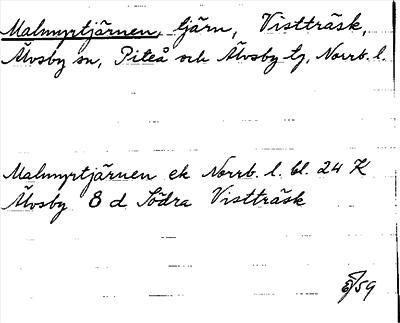 Malmyrtjärnen, tjärn, Vistträsk,
Älvsby sn, Piteå och Älvsby tg, Norrb. l.
Malmyrtjärnen ek Norrb. l. bl. 24 K
Älvsby 8 d Södra Vistträsk
6/59